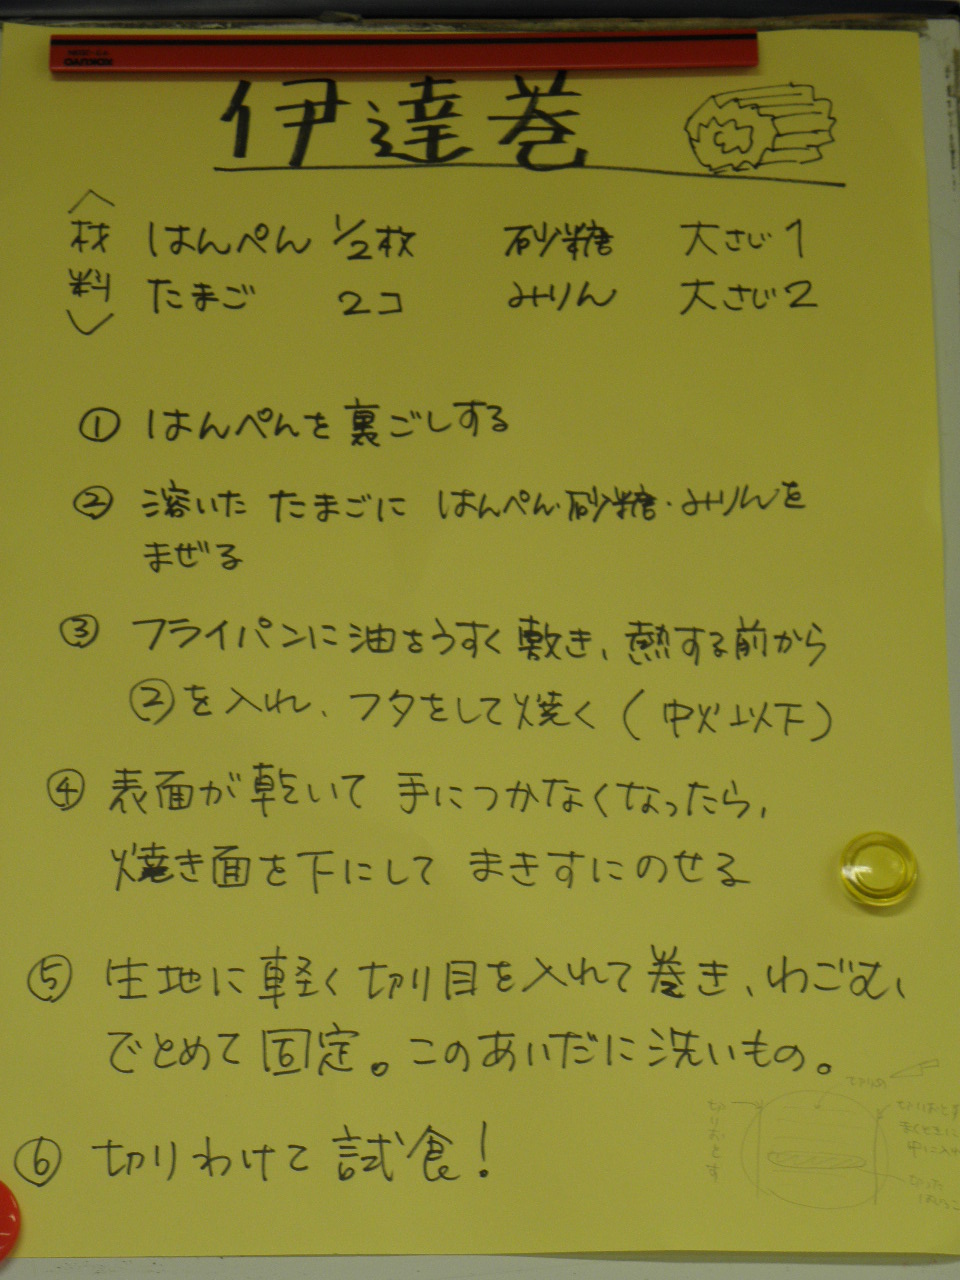 KOKUYO
伊達巻
〈材料〉
はんぺん 1/2枚 砂糖 大さじ1
たまご 2コ みりん 大さじ2
① はんぺんを裏ごしする
② 溶いた たまごに はんぺん・砂糖・みりんを
まぜる
③ フライパンに油をうすく敷き、熱する前から
②を入れ、フタをして焼く(中火以下)
④ 表面が乾いて 手につかなくなったら、
焼き面を下にして まきすにのせる
⑤ 生地に軽く切り目を入れて巻き、わごむ、
でとめて固定。このあいだに洗いもの。
⑥ 切りわけて試食!
切りおとす